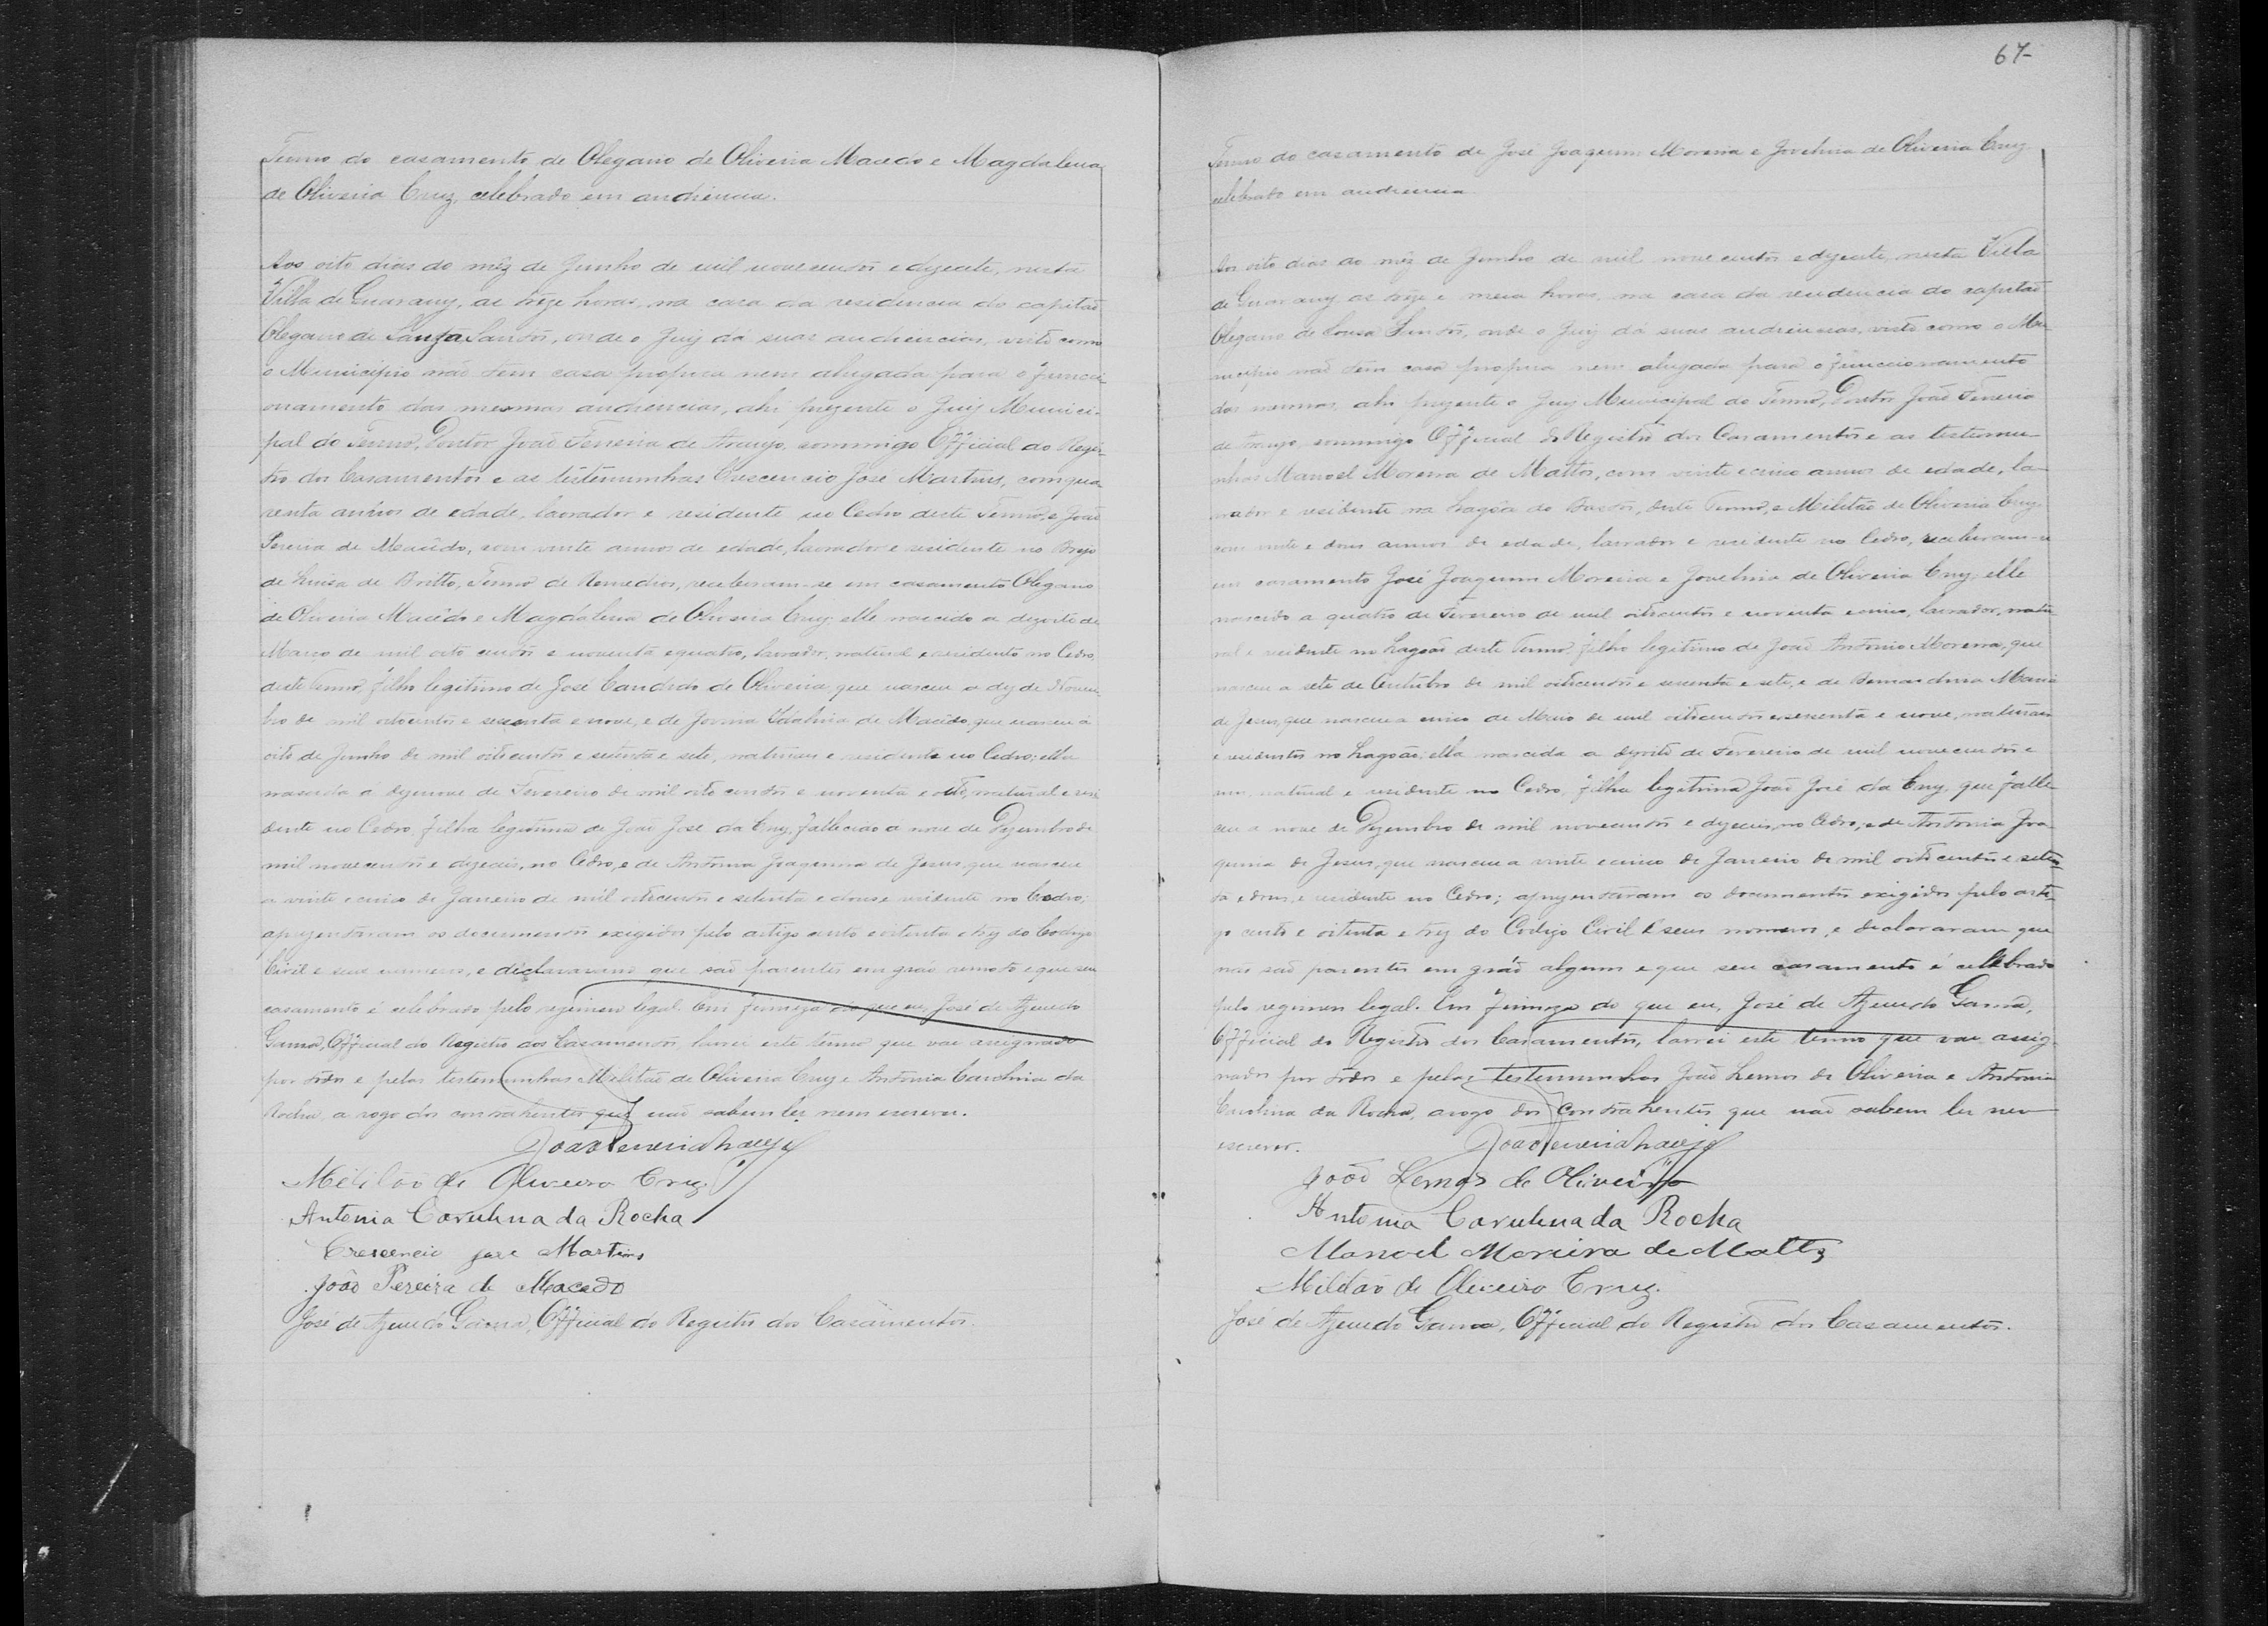 Termo do casamento de Olegario de Oliveira Macêdo e Magdalena
de Oliveira Cruz, celebrado em audiencia.
Aos oito dias do mêz de Junho de mil novecentos e dezecete, nesta
Villa de Guarany, as trêze horas, na casa da residencia do capitaõ
Olegario de Souza Santos, onde o Juiz dá suas audiencias, visto como
o Municipio naõ tem casa propria nem alugada para o funcci-
onamento das mesmas audiencias, ahi prezente o Juiz Munici-
pal do Termo, Doutor Joaõ Ferreira de Araujo, commigo Official do Regis-
tro dos Casamentos e as testemunhas Crescencio José Martins, com qua
renta annos de edade, lavrador e residente no Cedro deste Termo, e Joaõ
Pereira de Macêdo, com vinte annos de edade, lavrador e residente no Brejo
de Luisa de Britto, Termo de Remedios, receberam-se em casamento Olegario
de Oliveira Macêdo e Magdalena de Oliveira Cruz; elle nascido a dezoito de
Março de mil oito centos e noventa e quatro, lavrador, natural e residente no Cedro,
deste Termo, filho legitimo de José Candido de Oliveira, que nasceu a dez de Novem
bro de mil oitocentos e sessenta e nove, e de Jovina Idalina de Macêdo, que nasceu a
oito de Junho de mil oitocentos e setenta e sete, naturaes e residentes no Cedro; ella
nascida a dezenove de Fevereiro de mil oito centos e noventa e oito, natural e resi
dente no Cedro, filha legitima de Joaõ José da Cruz, fallecido a nove de Dezembro de
mil novecentos e dezeceis, no Cedro, e de Antonia Joaquina de Jesus, que nasceu
a vinte e cinco de Janeiro de mil oitocentos e setenta e dous e residente no Cedro;
aprezentaram os documentos exigidos pelo artigo cento e oitenta e trez do Codigo
Civil e seus numeros, e declararam que saõ parentes em gráo remoto e que seu
casamento é celebrado pelo regimen legal. Em firmeza do que eu, José de Azevedo
Gama, Official do Registro dos Casamentos, lavrei este termo que vae assignado
por todos e pelas testemunhas Militaõ de Oliveira Cruz e Antonia Carolina da
Rocha, a rogo dos contrahentes que naõ sabem ler nem escrever.
Joaõ Ferreira Araujo
Militaõ de Oliveira Cruz.
Antonia Carulina da Rocha
Crescencio José Martins
Joaõ Pereira de Macedo
José de Azevedo Gama, Official do Registro dos Casamentos.
67-
Termo do casamento de José Joaquim Moreira e Jovelina de Oliveira Cruz
celebrado em audiencia
Aos oito dias do mêz de Junho de mil nove centos e dezecete, nesta Villa
de Guarany as trêze e meia horas, na casa da residencia do capitaõ
Olegario de Sousa Santos, onde o Juiz dá suas audiencias, visto como o Mu
nicipio naõ tem casa propria nem alugada para o funccionamento
das mesmas, ahi prezente o Juiz Municipal do Termo, Doutor Joaõ Ferreira
de Araujo, commigo Official do Registro dos Casamentos e as testemu-
nhas Manoel Moreira de Mattos, com vinte e cinco annos de edade, la-
vrador e residente na Lagôa do Bastos, deste Termo, e Militaõ de Oliveira Cruz,
com vinte e dous annos de edade, lavrador e residente no Cedro, receberam-se
em casamento José Joaquim Moreira e Jovelina de Oliveira Cruz; elle
nascido a quatro de Fevereiro de mil oitocentos e noventa e cinco, lavrador, natu
ral e residente no Lagoaõ deste Termo, filho legitimo de Joaõ Antonio Moreira, que
nasceu a sete de Outubro de mil oitocentos e sessenta e sete, e de Bernardina Maria
de Jesus, que nasceu a cinco de Maio de mil oitocentos e sessenta e nove, naturaes
e residentes no Lagoaõ; ella nascida a dezoito de Fevereiro de mil novecentos e
um, natural e residente no Cedro, filha legitima Joaõ José da Cruz, que falle-
ceu a nove de Dezembro de mil novecentos e dezeceis, no Cedro, e de Antonia Joa
quina de Jesus, que nasceu a vinte e cinco de Janeiro de mil oitocentos e seten
ta e dous, e residente no Cedro; aprezentaram os documentos exigidos pelo arti-
go cento e oitenta e trez do Codigo Civil e seus numeros, e declararam que
naõ saõ parentes em gráo algum e que seu casamento é celebrado
pelo regimen legal. Em firmeza do que eu, José de Azevedo Gama,
Official do Registro dos Casamentos, lavrei este termo que vae assig-
nado por todos e pelas testemunhas Joaõ Lemos de Oliveira e Antonia
Carolina da Rocha, a rogo dos contrahentes que naõ sabem ler nem
escrever.
Joaõ Ferreira Araujo
Joaõ Lemos de Oliveira
Antonia Carulina da Rocha
Manoel Moreira de Mattos
Militaõ de Oliveira Cruz.
José de Azevedo Gama, Official do Registro dos Casamentos.